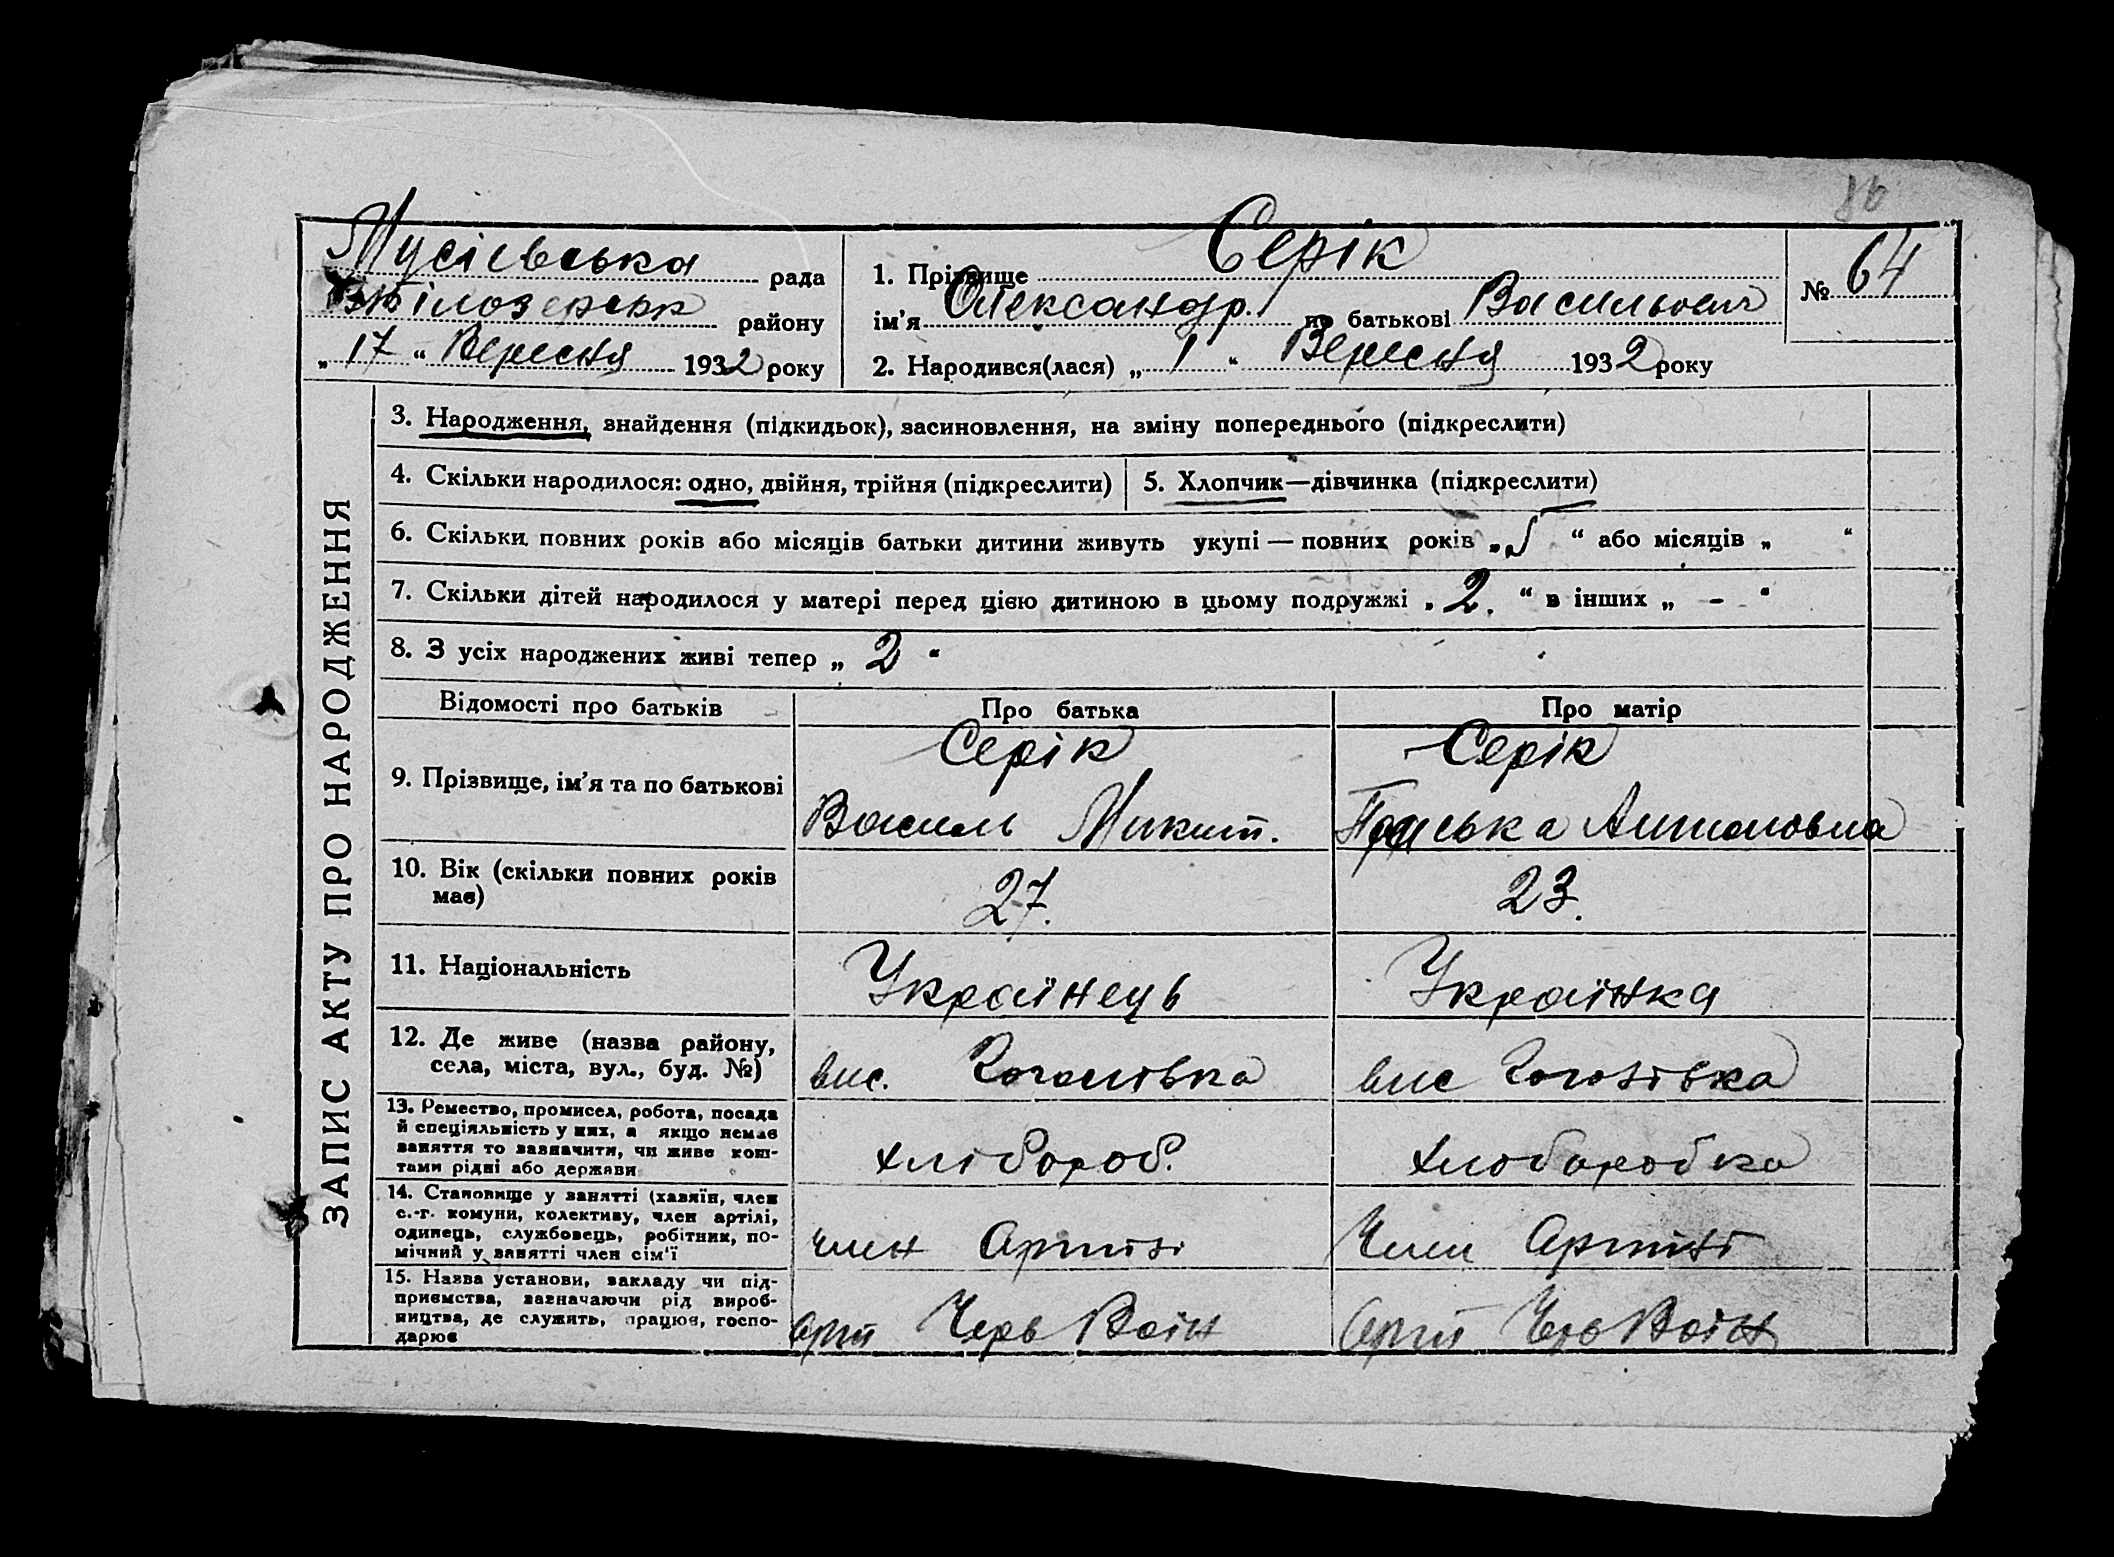 86
Мусіївська рада
району
„ 17 “ Вересня 1932 року
1. Прізвище Серік
ім’я Олександр. по батькові Васильович
№ 64
2. Народився(лася) „ 1 “ Вересня 1932 року
ЗАПИС АКТУ ПРО НАРОДЖЕННЯ
3. Народження, знайдення (підкидьок), засиновлення, на зміну попереднього (підкреслити)
4. Скільки народилося: одно, двійня, трійня (підкреслити)
5. Хлопчик—дівчинка (підкреслити)
6. Скільки повних років або місяців батьки дитини живуть укупі — повних років „ 5 “ або місяців „ “
7. Скільки дітей народилося у матері перед цією дитиною в цьому подружжі „ 2. “ в інших „ - “
8. З усіх народжених живі тепер „ 2 “
Відомості про батьків
Про батька
Про матір
9. Прізвище, ім’я та по батькові
Серік
Василь Микит.
Серік
Антоновна
10. Вік (скільки повних років
має)
27.
23.
11. Національність
Українець
Українка
12. Де живе (назва району,
села, міста, вул., буд. №)
вис. Гоголівка
вис Гоголівка
13. Ремество, промисел, робота, посада
й спеціяльність у них, а якщо немає
заняття то зазначити, чи живе кош-
тами рідні або держави
хлібороб.
хлоборобка
14. Становище у занятті (хазяїн, член
с.-г. комуни, колективу, член артілі,
одинець, службовець, робітник, по-
мічний у занятті член сім’ї
член Артілі
Член Артілі
15. Назва установи, закладу чи під-
приємства, зазначаючи рід вироб-
ництва, де служить, працює, госпо-
дарює
Арт Черв Воін
Арт Черв Воін